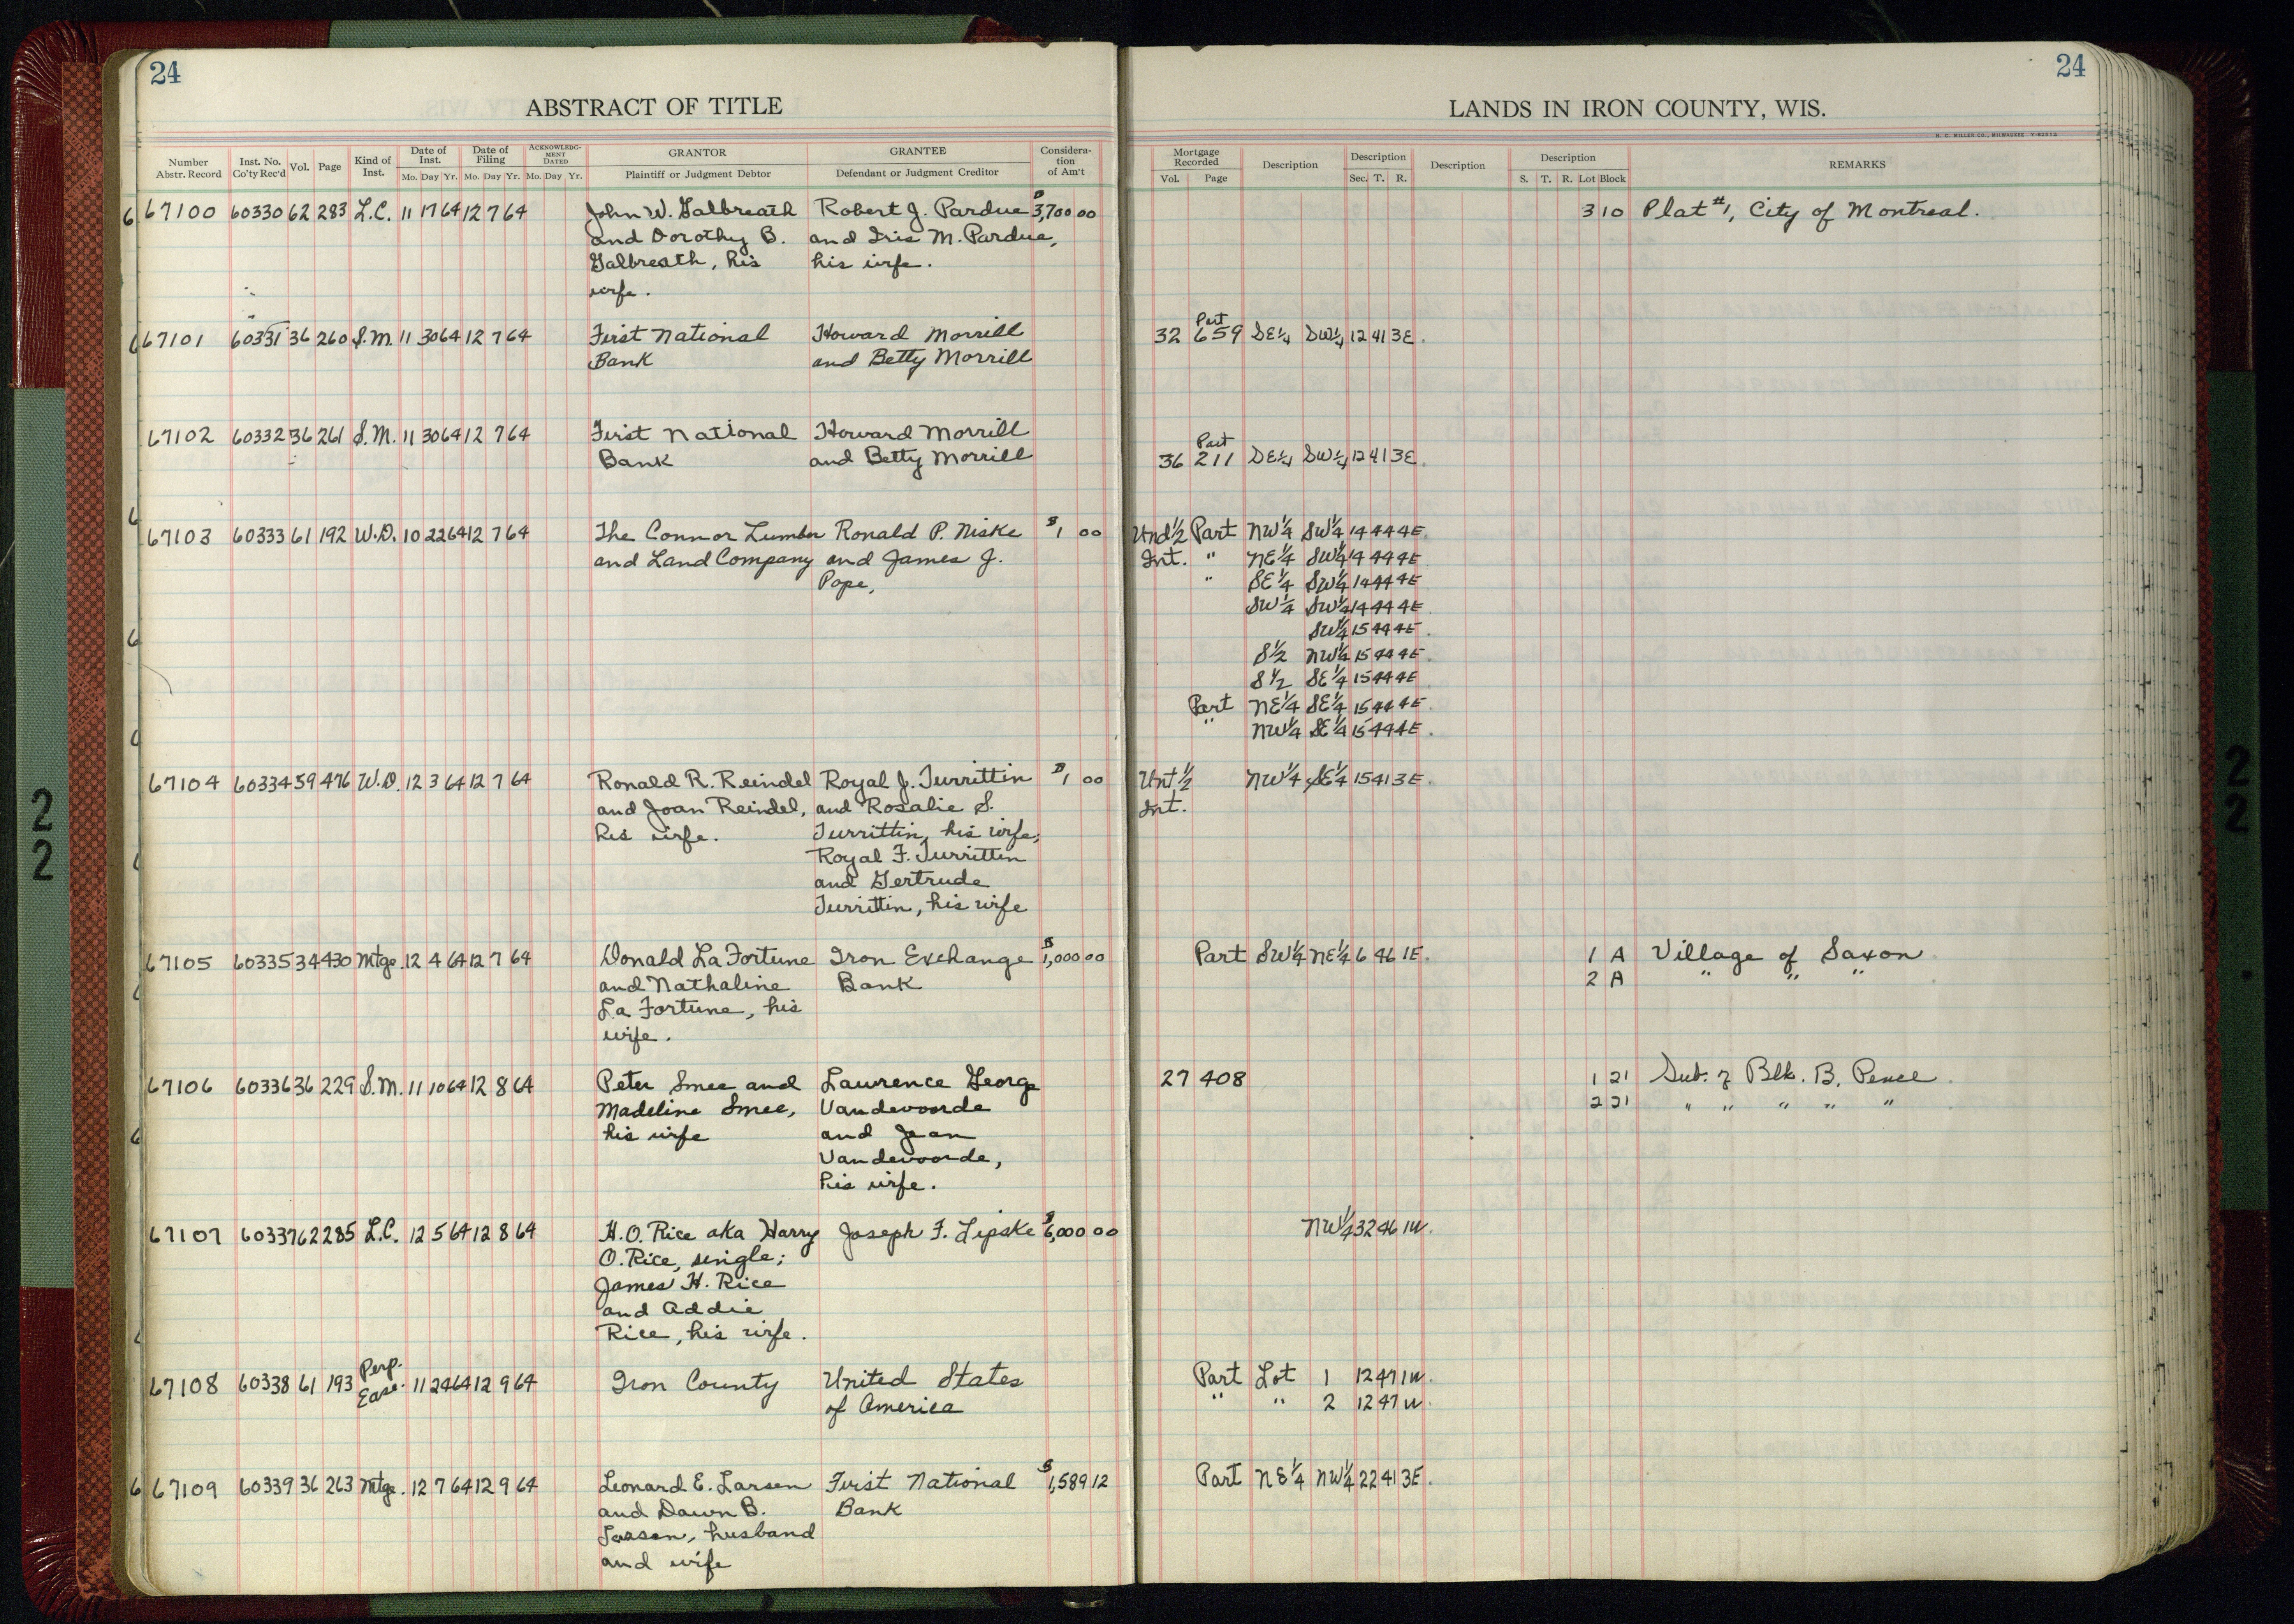 24
ABSTRACT OF TITLE
Number Abstr. Record | Inst. No. Co'ty Rec'd | Vol. | Page | Kind of Inst. | Date of Inst. Mo. Day Yr. | Date of Filing Mo. Day Yr. | ACKNOWLEDGMENT DATED Mo. Day Yr. | GRANTOR Plaintiff or Judgment Debtor | GRANTEE Defendant or Judgment Creditor | Consideration of Am't
67100 60330 62 283 L.C. 11 17 64 12 7 64 John W. Galbreath Robert J. Pardue $3,700 00
and Dorothy B. and Iris M. Pardue,
Galbreath, his his wife.
wife.
67101 60331 36 260 S.M. 11 30 64 12 7 64 First National Howard Morrill
Bank and Betty Morrill
67102 60332 36 261 S.M. 11 30 64 12 7 64 First National Howard Morrill
Bank and Betty Morrill
67103 60333 61 192 W.D. 10 22 64 12 7 64 The Connor Lumber Ronald P. Niske $1 00
and Land Company and James J.
Pope,
67104 60334 59 476 W.D. 12 3 64 12 7 64 Ronald R. Reindel Royal J. Turrittin $1 00
and Joan Reindel, and Rosalie S.
his wife. Turrittin, his wife;
Royal F. Turrittin
and Gertrude
Turrittin, his wife
67105 60335 34 430 Mtge. 12 4 64 12 7 64 Donald La Fortune Iron Exchange $1,000 00
and Nathaline Bank
La Fortune, his
wife.
67106 60336 36 229 S.M. 11 10 64 12 8 64 Peter Smee and Lawrence George
Madeline Smee, Vandevoorde
his wife and Jean
Vandevoorde,
his wife.
67107 60337 62 285 L.C. 12 5 64 12 8 64 H.O. Rice aka Harry Joseph F. Lipske $6,000 00
O. Rice, single;
James H. Rice
and Addie
Rice, his wife.
67108 60338 61 193 Perp. Ease. 11 24 64 12 9 64 Iron County United States
of America
67109 60339 36 263 Mtge. 12 7 64 12 9 64 Leonard E. Larsen First National $1,589 12
and Dawn B. Bank
Larsen, husband
and wife
24
LANDS IN IRON COUNTY, WIS.
H. C. MILLER CO., MILWAUKEE
Mortgage Recorded Vol. Page | Description | Description Sec. T. R. | Description | Description S. T. R. Lot Block | REMARKS
3 10 Plat #1, City of Montreal.
Part
32 659 SE¼ SW¼ 12 41 3E.
Part
36 211 SE¼ SW¼ 12 41 3E.
Und ½ Part NW¼ SW¼ 14 44 4E.
Int. " NE¼ SW¼ 14 44 4E
" SE¼ SW¼ 14 44 4E
SW¼ SW¼ 14 44 4E
SW¼ 15 44 4E.
S½ NW¼ 15 44 4E.
S½ SE¼ 15 44 4E
Part NE¼ SE¼ 15 44 4E.
" NW¼ SE¼ 15 44 4E.
Unt ½ NW¼ SE¼ 15 41 3E.
Int.
Part SW¼ NE¼ 6 46 1E. 1 A Village of Saxon
2 A " " "
27 408 1 21 Sub. of Blk. B, Pence
2 21 " " " " "
NW¼ 32 46 1W.
Part Lot 1 12 47 1W.
" " 2 12 47 W.
Part NE¼ NW¼ 22 41 3E.
22
22